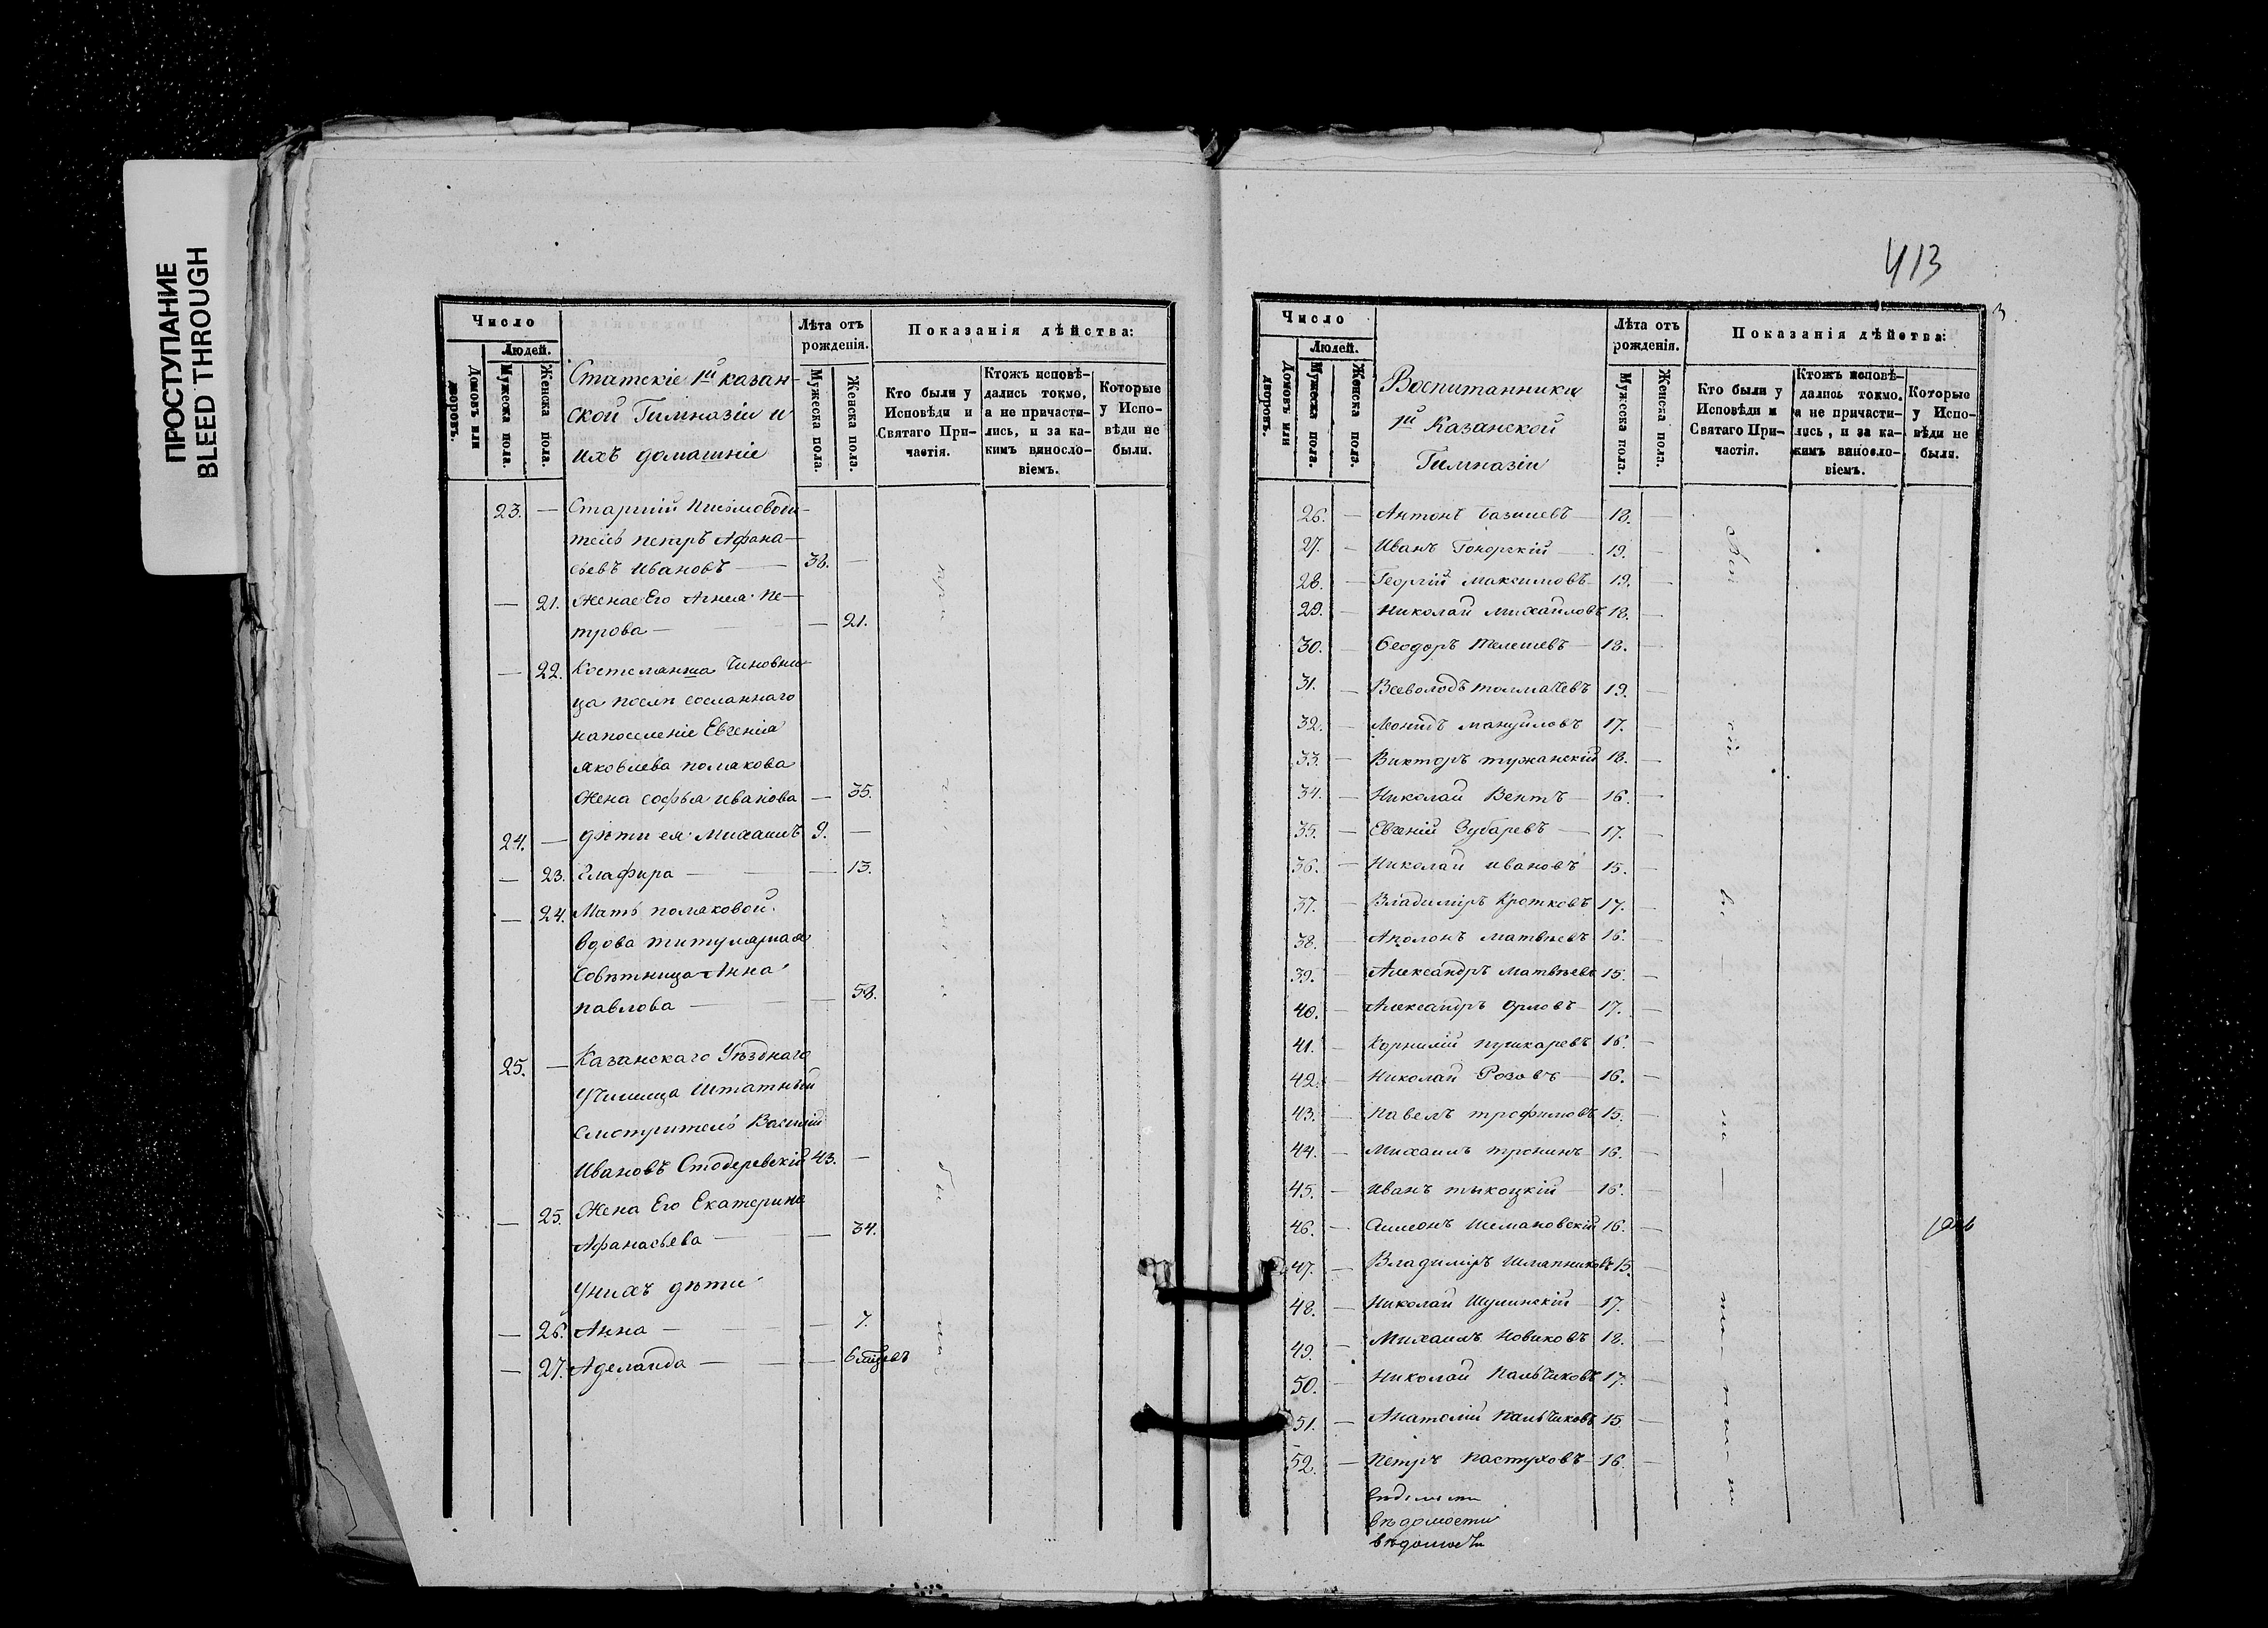 ПРОСТУПАНИЕ
BLEED THROUGH
Число
Людей.
Домовъ или дворовъ.
Мужеска пола.
Женска пола.
Статскіе 1й казан-
ской Гимназіи и
ихъ домашніе
Лѣта отъ рожденія.
Мужеска пола.
Женска пола.
Показанія дѣйства:
Кто были у Исповѣди и Святаго При-частія.
Ктожъ исповѣ-дались токмо, а не причасти-лись, и за ка-кимъ винословіемъ.
Которые у Испо-вѣди не были.
23. — Старшій письмоводи-
тель петръ Афана-
сьевъ Ивановъ — 38. —
— 21. Жена Его Пе-
трова — — 21.
— 22. Чиновни-
ца послѣ сосланнаго
на поселеніе Евгенія
яковлева полякова
Жена софья иванова — 35.
24. — дѣти ея: Михаилъ 9. —
— 23. Глафира — — 13.
— 24. Мать поляковой.
вдова титулярная
Совѣтница Анна
павлова — — 58.
25. — Казанскаго Уѣзднаго
Училища Штатный
Смотритель Василій
Ивановъ 43. —
— 25. Жена Его Екатерина
Афанасьева — — 34.
У нихъ дѣти
— 26. Анна — — 7.
— 27. Аделаида — — 6
413
3.
Число
Людей.
Домовъ или дворовъ.
Мужеска пола.
Женска пола.
Воспитанники
1й Казанской
Гимназіи
Лѣта отъ рожденія.
Мужеска пола.
Женска пола.
Показанія дѣйства:
Кто были у Исповѣди и Святаго При-частія.
Ктожъ исповѣ-дались токмо, а не причасти-лись, и за ка-кимъ винословіемъ.
Которые у Испо-вѣди не были.
26. — Антонъ 18. —
27. — Иванъ Гонорскій — 19. —
28. — Георгій Максимовъ — 19. —
29. — Николай Михайловъ 18. —
30. — Ѳеодоръ 18. —
31. — Всеволодъ толмачевъ 19. —
32. — Леонидъ мануйловъ 17. —
33. — Викторъ тужанскій 18. —
34. — Николай Вентъ — 16. —
35. — Евгеній Зубаревъ — 17. —
36. — Николай ивановъ 15. —
37. — Владиміръ Кротковъ 17. —
38. — Аполонъ матвѣевъ 16. —
39. — Александръ матвѣевъ 15. —
40. — Александръ Орловъ — 17. —
41. — Корнилій пушкаревъ 16. —
42. — Николай Розовъ — 16. —
43. — павелъ трофимовъ 15. —
44. — Михаилъ тронинъ — 16. —
45. — Иванъ тыкоцкій — 16. —
46. — Симеонъ Шемановскій 16. —
47. — Владиміръ Шляпниковъ 15. —
48. — Николай Шулинскій — 17. —
49. — Михаилъ Новиковъ 18. —
50. — Николай пальчиковъ 17. —
51. — Анатолій пальчиковъ 15. —
52. — петръ пастуховъ — 16. —
вѣдомости
вѣдомости